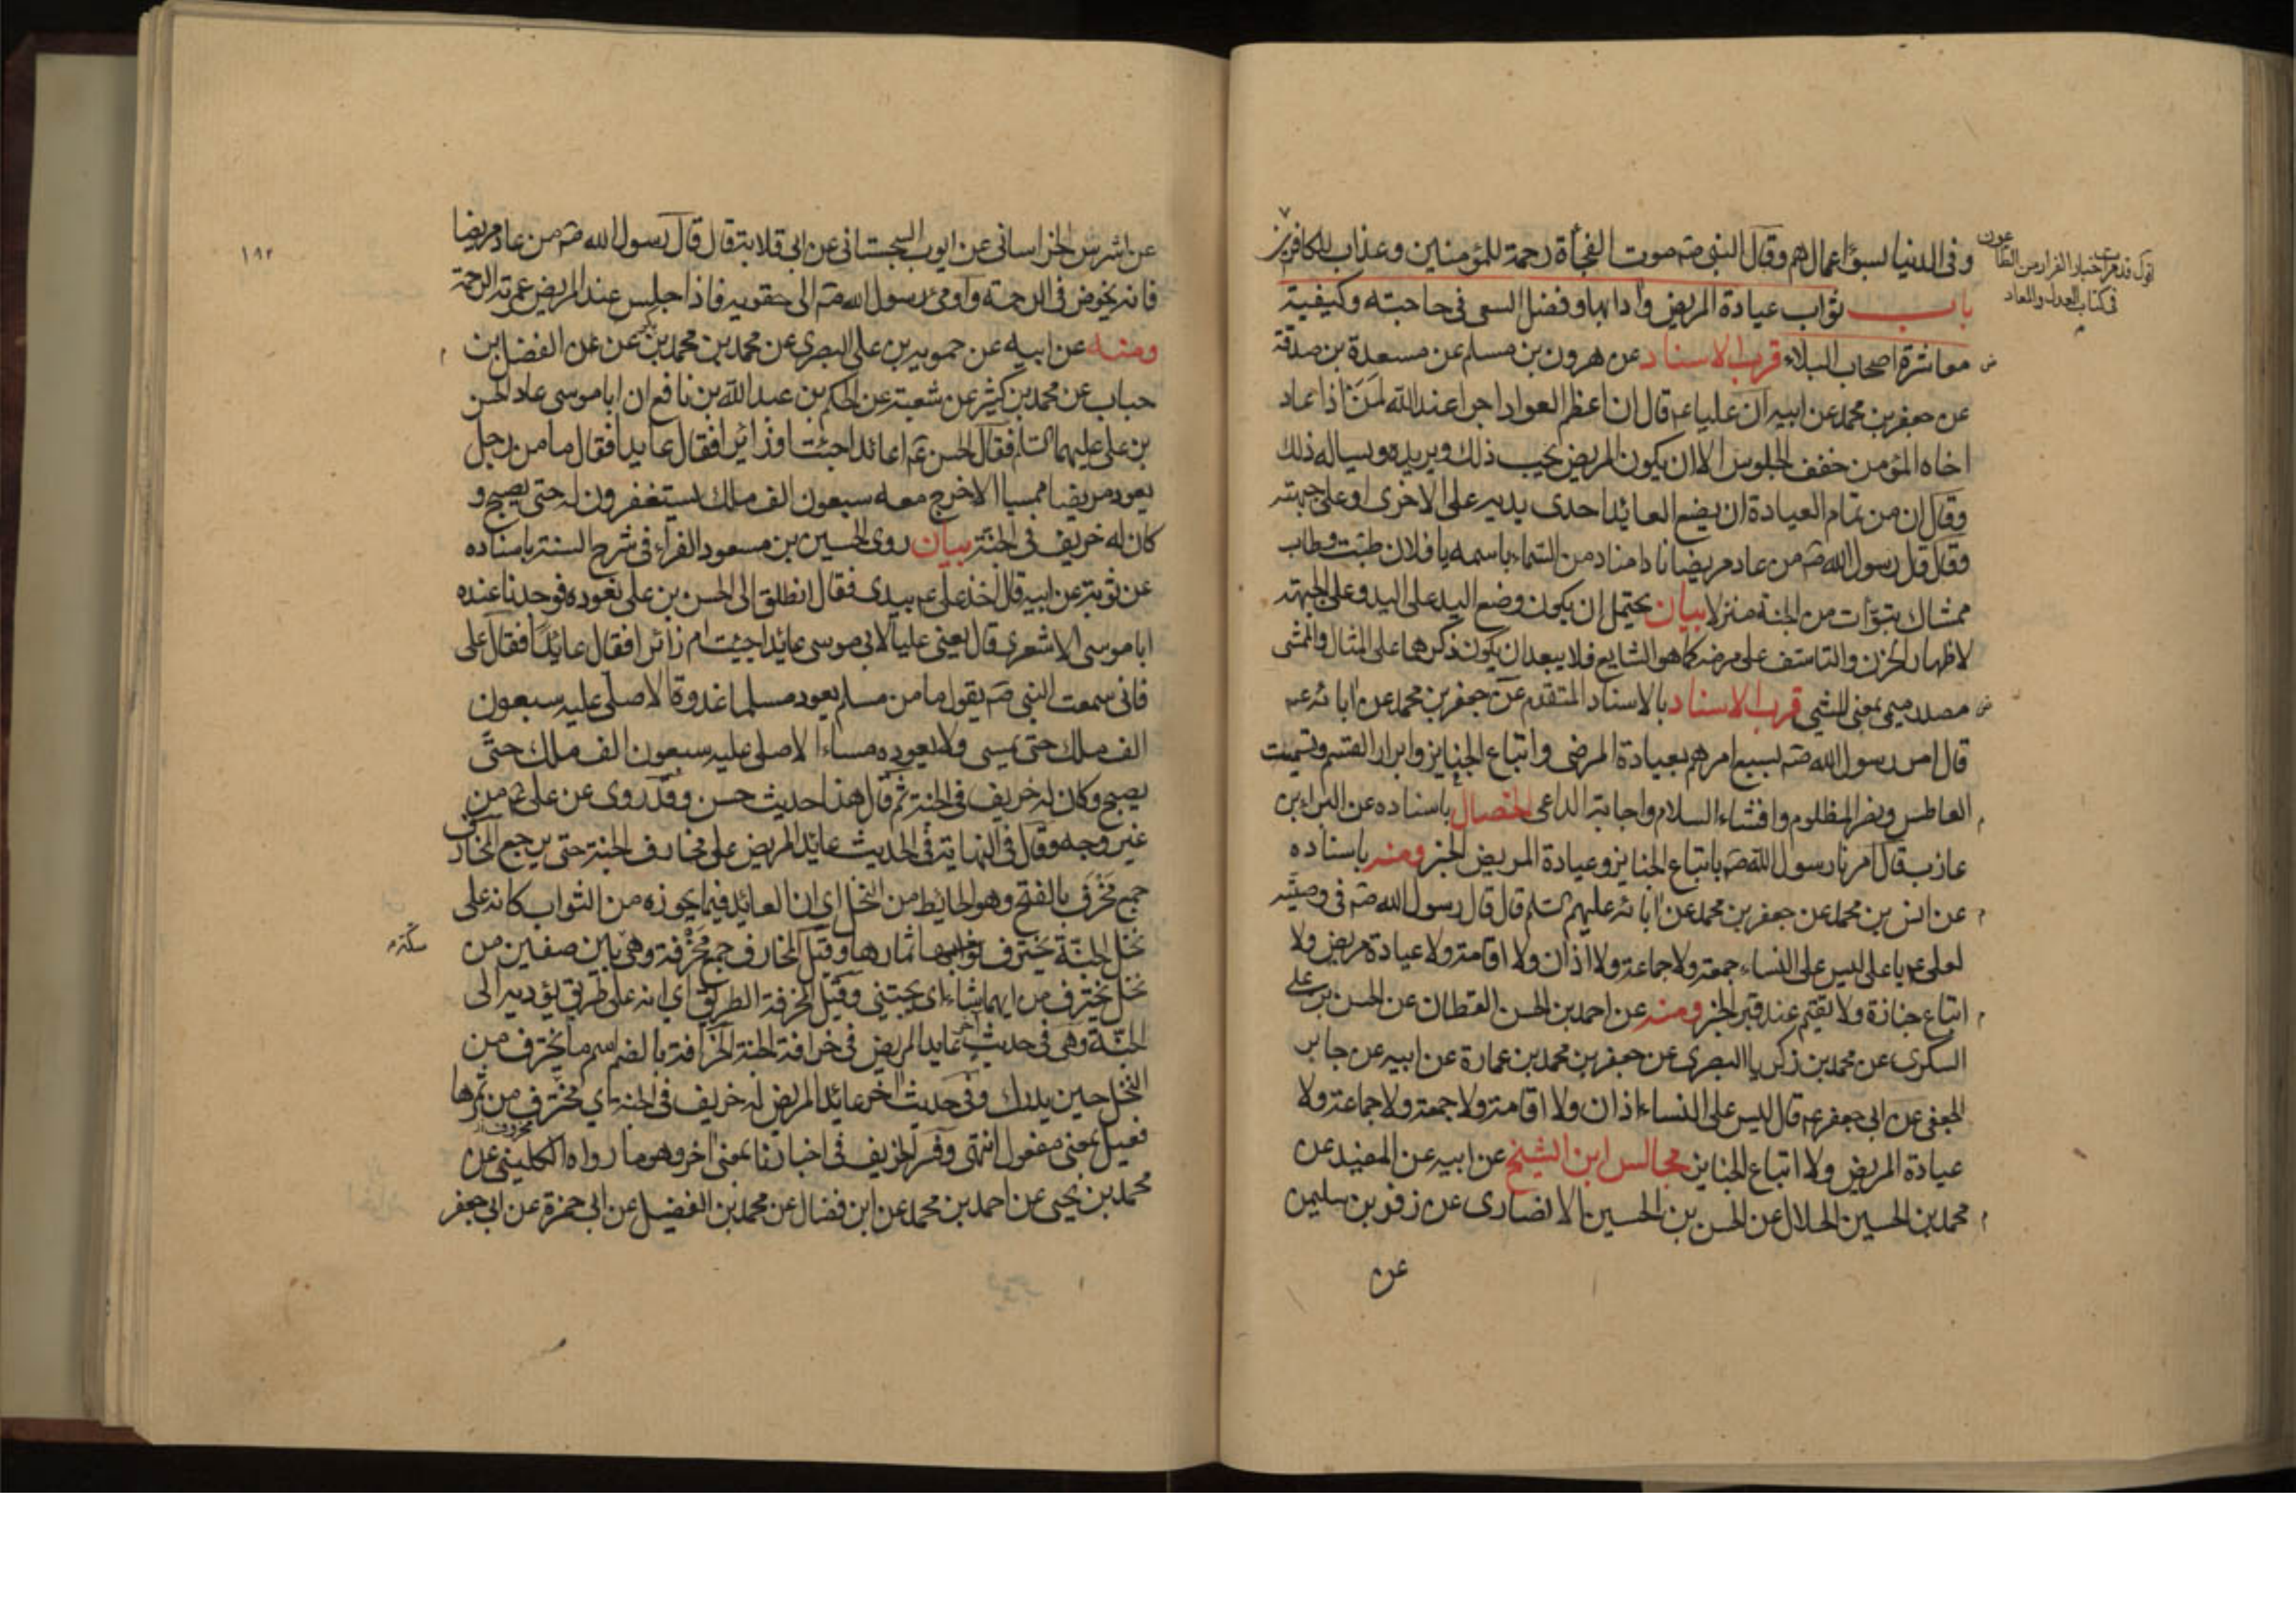 وفى الدنيا لسوء اعمالهم وقال النبى صم موت الفجأة رحمة للمؤمنين وعذاب للكافرين
اقول قد مرت اخبار الفرار من الطاعون
فى كتاب العدل والمعاد
باب ثواب عيادة المريض وآدابها وفضل السعى فى حاجته وكيفية
معاشرة اصحاب البلاء قرب الاسناد عن هرون بن مسلم عن مسعدة بن صدقة
عن جعفر بن محمد عن ابيه ان عليا عم قال ان اعظم العواد اجرا عند الله لمن اذا عاد
اخاه المؤمن خفف الجلوس الا ان يكون المريض يحب ذلك ويريده ويساله ذلك
وقال ان من تمام العيادة ان يضع العايد احدى يديه على الاخرى او على جبهته
وقال قال رسول الله صم من عاد مريضا نادا مناد من السماء باسمه يا فلان طبت وطاب
ممشاك تبوأت من الجنة منزلا بيان يحتمل ان يكون وضع اليد على اليد وعلى الجبهة
لاظهار الحزن والتاسف على مرضه كما هو الشايع فلا يبعد ان يكون ذكرهما على المثال والممشى
مصدر ميمى بمعنى المشى قرب الاسناد بالاسناد المتقدم عن جعفر بن محمد عن ابائه عم
قال امر رسول الله صم بسبع امرهم بعيادة المرضى واتباع الجنايز وابرار القسم وتسميت
العاطس ونصر المظلوم وافشاء السلام واجابة الداعى الخصال باسناده عن البراء بن
عازب قال امرنا رسول الله صم باتباع الجنايز وعيادة المريض الخبر ومنه باسناده
عن انس بن محمد عن جعفر بن محمد عن ابائه عليهم السلم قال قال رسول الله صم فى وصيته
لعلى عم يا على ليس على النساء جمعة ولا جماعة ولا اذان ولا اقامة ولا عيادة مريض ولا
اتباع جنازة ولا تقيم عند قبر الخبر ومنه عن احمد بن الحسن القطان عن الحسن بن على
السكرى عن محمد بن زكريا البصرى عن جعفر بن محمد بن عمارة عن ابيه عن جابر
الجعفى عن ابى جعفر عم قال ليس على النساء اذان ولا اقامة ولا جمعة ولا جماعة ولا
عيادة المريض ولا اتباع الجنايز مجالس ابن الشيخ عن ابيه عن المفيد عن
محمد بن الحسين الحلال عن الحسن بن الحسين الانصارى عن زفر بن سليمن
عن
١٩٢
عن اشرس الخراسانى عن ايوب السجستانى عن ابى قلابة قال قال رسول الله صم من عاد مريضا
فانه يخوض فى الرحمة واومئ رسول الله صم الى حقويه فاذا جلس عند المريض غمرته الرحمة
ومنه عن ابيه عن حمويه بن على البصرى عن محمد بن محمد بن بكر عن الفضل بن
حباب عن محمد بن كثير عن شعبة عن الحكم بن عبد الله بن نافع ان ابا موسى عاد الحسن
بن على عليهما السلم فقال الحسن عم اعائدا جئت او زائرا فقال عايدا فقال ما من رجل
يعود مريضا ممسيا الا خرج معه سبعون الف ملك يستغفرون له حتى يصبح و
كان له خريف فى الجنة بيان روى الحسين بن مسعود الفراء فى شرح السنة باسناده
عن ثوير عن ابيه قال اخذ على عم بيدى فقال انطلق الى الحسن بن على نعوده فوجدنا عنده
ابا موسى الاشعرى قال يعنى عليا لابى موسى عايدا جيت ام زائرا فقال عائدا فقال على
فانى سمعت النبى صم يقول ما من مسلم يعود مسلما غدوة الا صلى عليه سبعون
الف ملك حتى يمسى ولا يعوده مساءا الا صلى عليه سبعون الف ملك حتى
يصبح وكان له خريف فى الجنة ثم قال هذا حديث حسن وقد روى عن على عم من
غير وجه وقال فى النهاية فى الحديث عائد المريض على مخارف الجنة حتى يرجع المخارف
جمع مخرف بالفتح وهو الحائط من النخل اى ان العائد فيما يحوزه من الثواب كانه على
نخل الجنة يخترف ثمارها وقيل المخارف جمع مخرفة وهى سكة بين صفين من
نخل يخترف من ايهما شاء اى يجتنى وقيل المخرفة الطريق اى انه على طريق يؤديه الى
الجنة وهى فى حديث آخر عايد المريض فى خرافة الجنة الخرافة بالضم اسم ما يخترف من
النخل حين يدرك وفى حديث اخر عائد المريض له خريف فى الجنة اى مخترف من ثمرها
فعيل بمعنى مفعول انتهى وفسر الخريف فى اخبارنا بمعنى اخر وهو ما رواه الكلينى عن
محمد بن يحيى عن احمد بن محمد عن ابن فضال عن محمد بن الفضيل عن ابى حمزة عن ابى جعفر